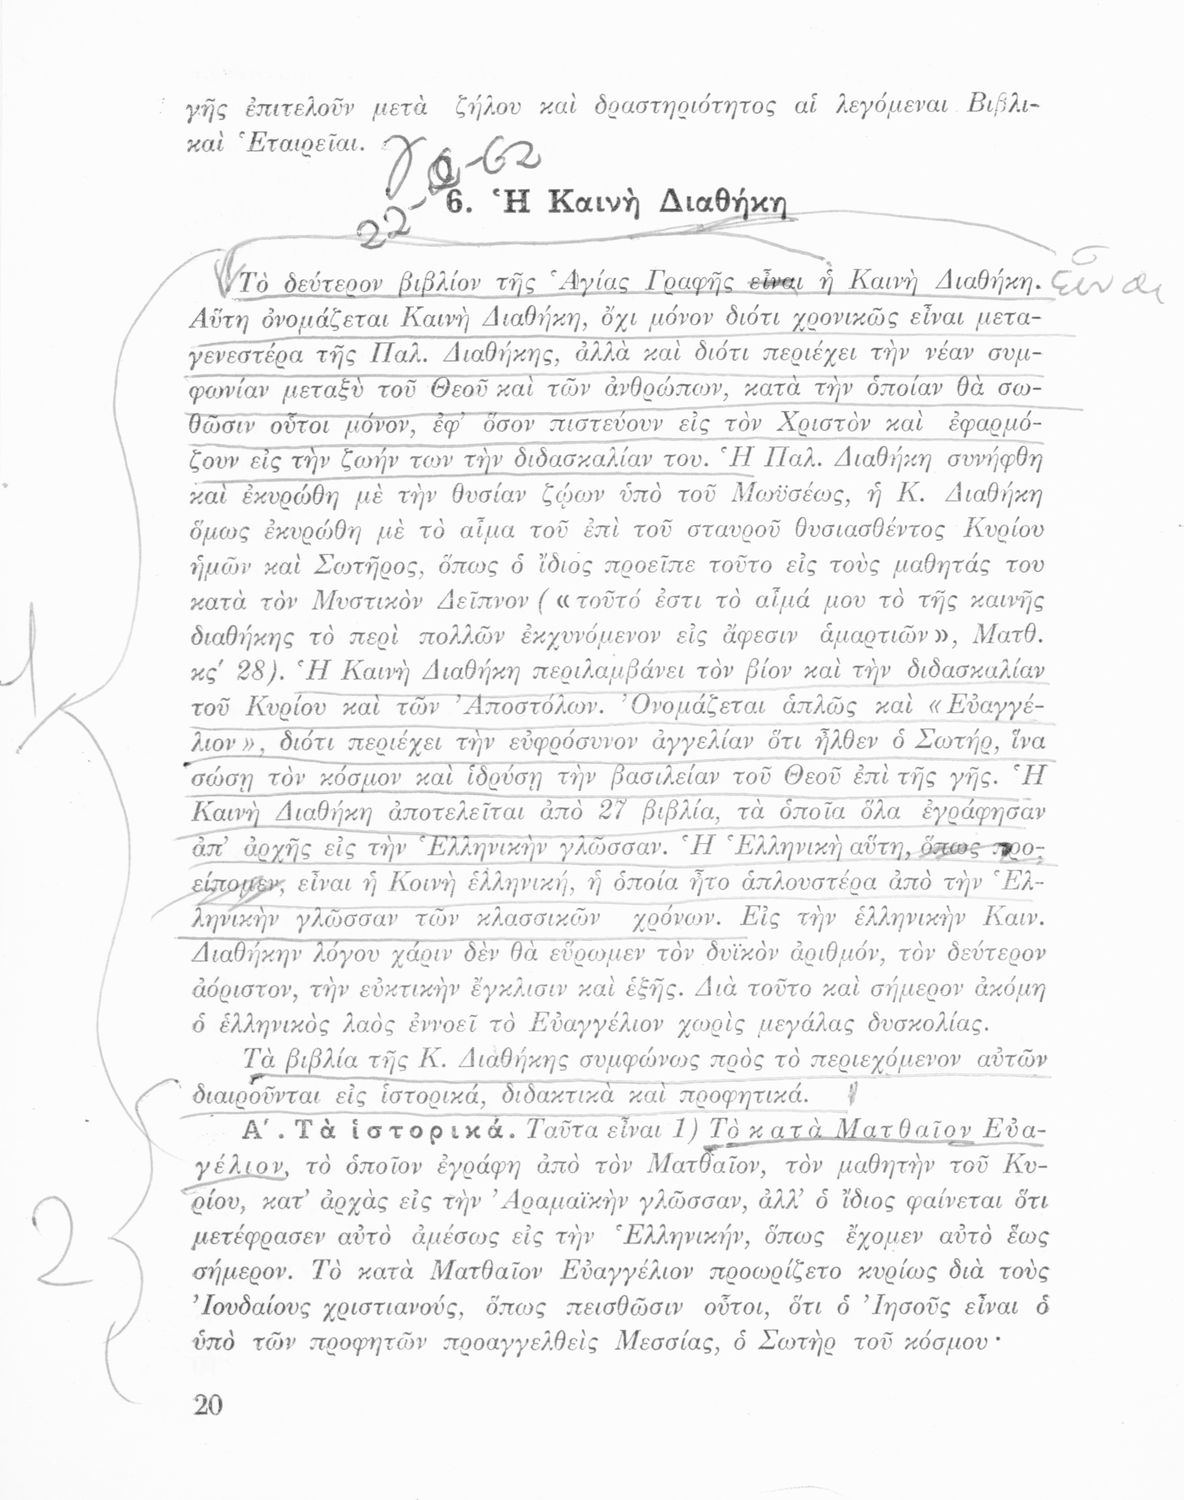 γῆς ἐπιτελοῦν μετὰ ζήλου καὶ δραστηριότητος αἱ λεγόμεναι Βιβλι-
καὶ Ἑταιρεῖαι.
22- -62
6. Ἡ Καινὴ Διαθήκη
Τὸ δεύτερον βιβλίον τῆς Ἁγίας Γραφῆς εἶναι ἡ Καινὴ Διαθήκη. εἶναι
Αὕτη ὀνομάζεται Καινὴ Διαθήκη, ὄχι μόνον διότι χρονικῶς εἶναι μετα-
γενεστέρα τῆς Παλ. Διαθήκης, ἀλλὰ καὶ διότι περιέχει τὴν νέαν συμ-
φωνίαν μεταξὺ τοῦ Θεοῦ καὶ τῶν ἀνθρώπων, κατὰ τὴν ὁποίαν θὰ σω-
θῶσιν οὗτοι μόνον, ἐφ' ὅσον πιστεύουν εἰς τὸν Χριστὸν καὶ ἐφαρμό-
ζουν εἰς τὴν ζωήν των τὴν διδασκαλίαν του. Ἡ Παλ. Διαθήκη συνήφθη
καὶ ἐκυρώθη μὲ τὴν θυσίαν ζῴων ὑπὸ τοῦ Μωϋσέως, ἡ Κ. Διαθήκη
ὅμως ἐκυρώθη μὲ τὸ αἷμα τοῦ ἐπὶ τοῦ σταυροῦ θυσιασθέντος Κυρίου
ἡμῶν καὶ Σωτῆρος, ὅπως ὁ ἴδιος προεῖπε τοῦτο εἰς τοὺς μαθητάς του
κατὰ τὸν Μυστικὸν Δεῖπνον (« τοῦτό ἐστι τὸ αἷμά μου τὸ τῆς καινῆς
διαθήκης τὸ περὶ πολλῶν ἐκχυνόμενον εἰς ἄφεσιν ἁμαρτιῶν », Ματθ.
κς' 28). Ἡ Καινὴ Διαθήκη περιλαμβάνει τὸν βίον καὶ τὴν διδασκαλίαν
τοῦ Κυρίου καὶ τῶν Ἀποστόλων. Ὀνομάζεται ἁπλῶς καὶ « Εὐαγγέ-
λιον », διότι περιέχει τὴν εὐφρόσυνον ἀγγελίαν ὅτι ἦλθεν ὁ Σωτήρ, ἵνα
1
σώσῃ τὸν κόσμον καὶ ἱδρύσῃ τὴν βασιλείαν τοῦ Θεοῦ ἐπὶ τῆς γῆς. Ἡ
Καινὴ Διαθήκη ἀποτελεῖται ἀπὸ 27 βιβλία, τὰ ὁποῖα ὅλα ἐγράφησαν
ἀπ' ἀρχῆς εἰς τὴν Ἑλληνικὴν γλῶσσαν. Ἡ Ἑλληνικὴ αὕτη, ὅπως προ-
είπομεν, εἶναι ἡ Κοινὴ ἑλληνική, ἡ ὁποία ἦτο ἁπλουστέρα ἀπὸ τὴν Ἑλ-
ληνικὴν γλῶσσαν τῶν κλασσικῶν χρόνων. Εἰς τὴν ἑλληνικὴν Καιν.
Διαθήκην λόγου χάριν δὲν θὰ εὕρωμεν τὸν δυϊκὸν ἀριθμόν, τὸν δεύτερον
ἀόριστον, τὴν εὐκτικὴν ἔγκλισιν καὶ ἑξῆς. Διὰ τοῦτο καὶ σήμερον ἀκόμη
ὁ ἑλληνικὸς λαὸς ἐννοεῖ τὸ Εὐαγγέλιον χωρὶς μεγάλας δυσκολίας.
Τὰ βιβλία τῆς Κ. Διαθήκης συμφώνως πρὸς τὸ περιεχόμενον αὐτῶν
διαιροῦνται εἰς ἱστορικά, διδακτικὰ καὶ προφητικά.
Α'. Τὰ ἱστορικά. Ταῦτα εἶναι 1) Τὸ κατὰ Ματθαῖον Εὐα-
γέλιον, τὸ ὁποῖον ἐγράφη ἀπὸ τὸν Ματθαῖον, τὸν μαθητὴν τοῦ Κυ-
ρίου, κατ' ἀρχὰς εἰς τὴν Ἀραμαϊκὴν γλῶσσαν, ἀλλ' ὁ ἴδιος φαίνεται ὅτι
2
μετέφρασεν αὐτὸ ἀμέσως εἰς τὴν Ἑλληνικήν, ὅπως ἔχομεν αὐτὸ ἕως
σήμερον. Τὸ κατὰ Ματθαῖον Εὐαγγέλιον προωρίζετο κυρίως διὰ τοὺς
Ἰουδαίους χριστιανούς, ὅπως πεισθῶσιν οὗτοι, ὅτι ὁ Ἰησοῦς εἶναι ὁ
ὑπὸ τῶν προφητῶν προαγγελθεὶς Μεσσίας, ὁ Σωτὴρ τοῦ κόσμου·
20